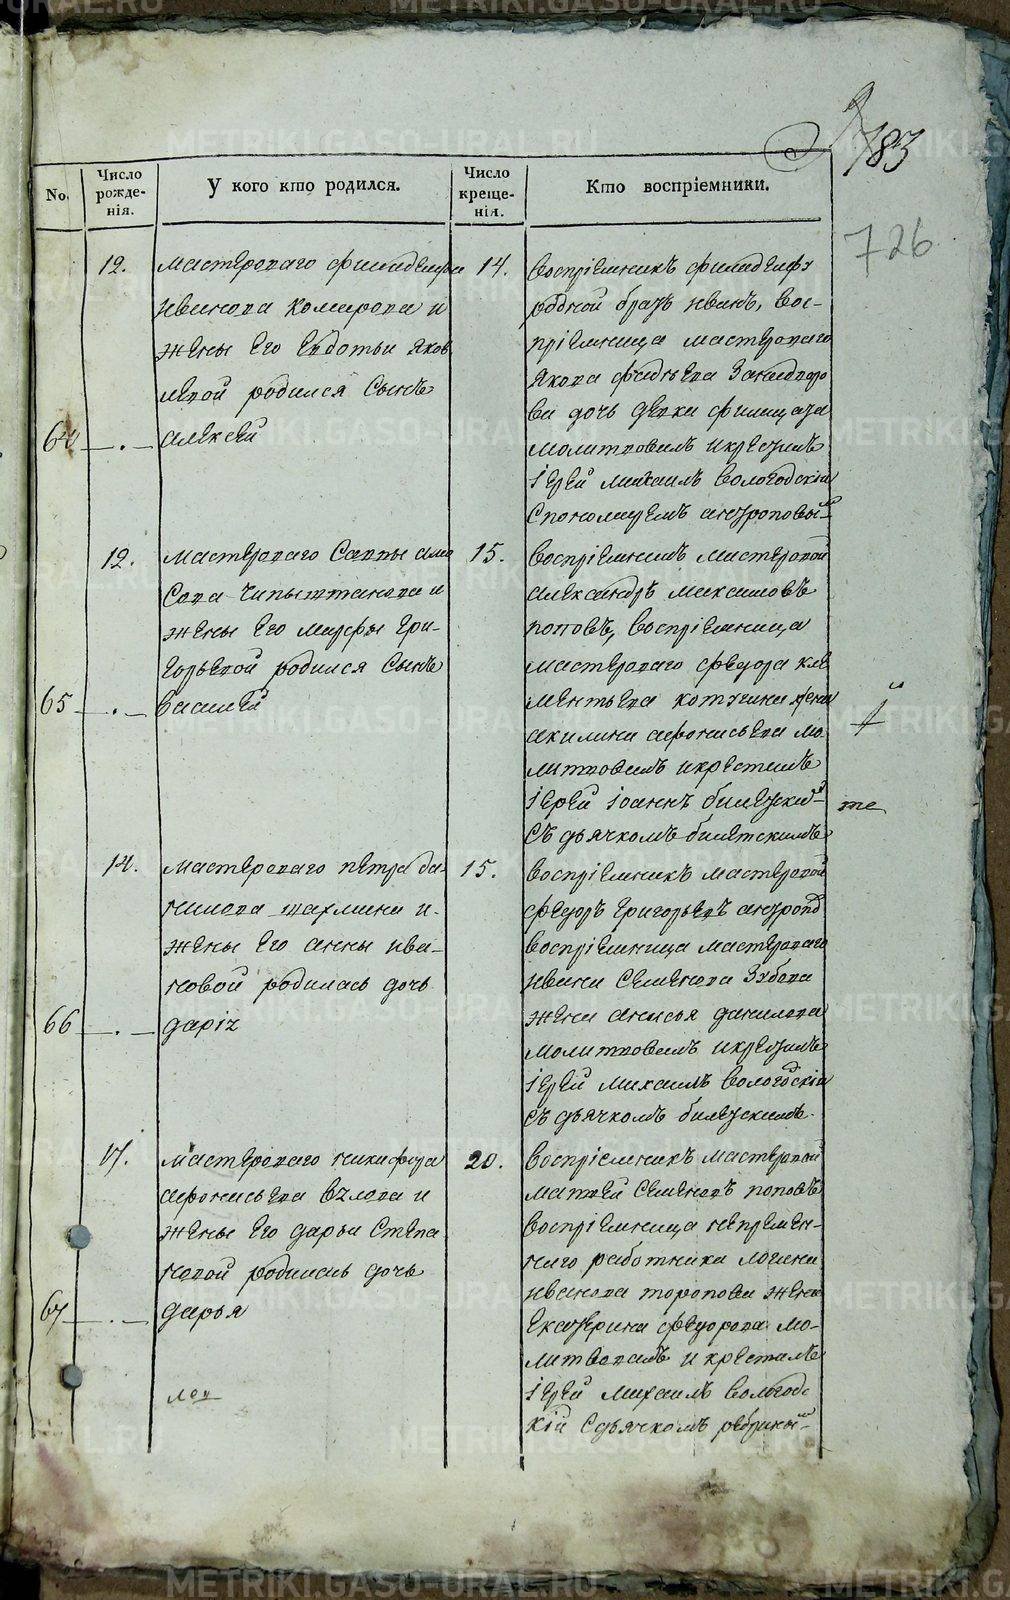 183
726
No.
Число рожде-нія.
У кого кто родился.
Число креще-нія.
Кто воспріемники.
64
12.
мастероваго филадельфа
иванова комарова и
жены его евдотьи яков
левой родился сынъ
алексей
14.
воспріемникъ филадельфу
родной братъ иванъ, вос-
пріемница мастероваго
якова
ва дочь девка
молитвовалъ и крестилъ
іерей михаилъ вологодскій
с пономаремъ антроповы
65
12.
мастероваго саввы ама
сова и
жены его марфы гри-
горьевой родился сынъ
василей
15.
воспріемникъ мастеровой
александръ максимовъ
поповъ, воспріемница
мастероваго федора кле
ментьева котугина жена
акилина афонасьева мо
литвовалъ и крестилъ
іерей іоаннъ билецкій
съ дьячкомъ билетскимъ
66
14.
мастероваго петра да-
нилова шахмина и
жены его анны ива-
новой родилась дочь
дарія
15.
воспріемникъ мастеровой
федоръ григорьевъ антропов
воспріемница мастероваго
ивана семенова зубова
жена анисья данилова
молитвовалъ и крестилъ
іерей михаилъ вологодскій
съ дьячкомъ билецкимъ
67
17.
мастероваго никифора
афонасьева вялова и
жены его дарьи степа
новой родилась дочь
дарья
20.
воспріемникъ мастеровой
матвей семеновъ поповъ
воспріемница непремен-
наго работника логина
иванова торопова жена
екатерина федорова мо-
литвовалъ и крестилъ
іерей михаилъ вологод
кій с дьячкомъ
METRIKI.GASO-URAL.RU